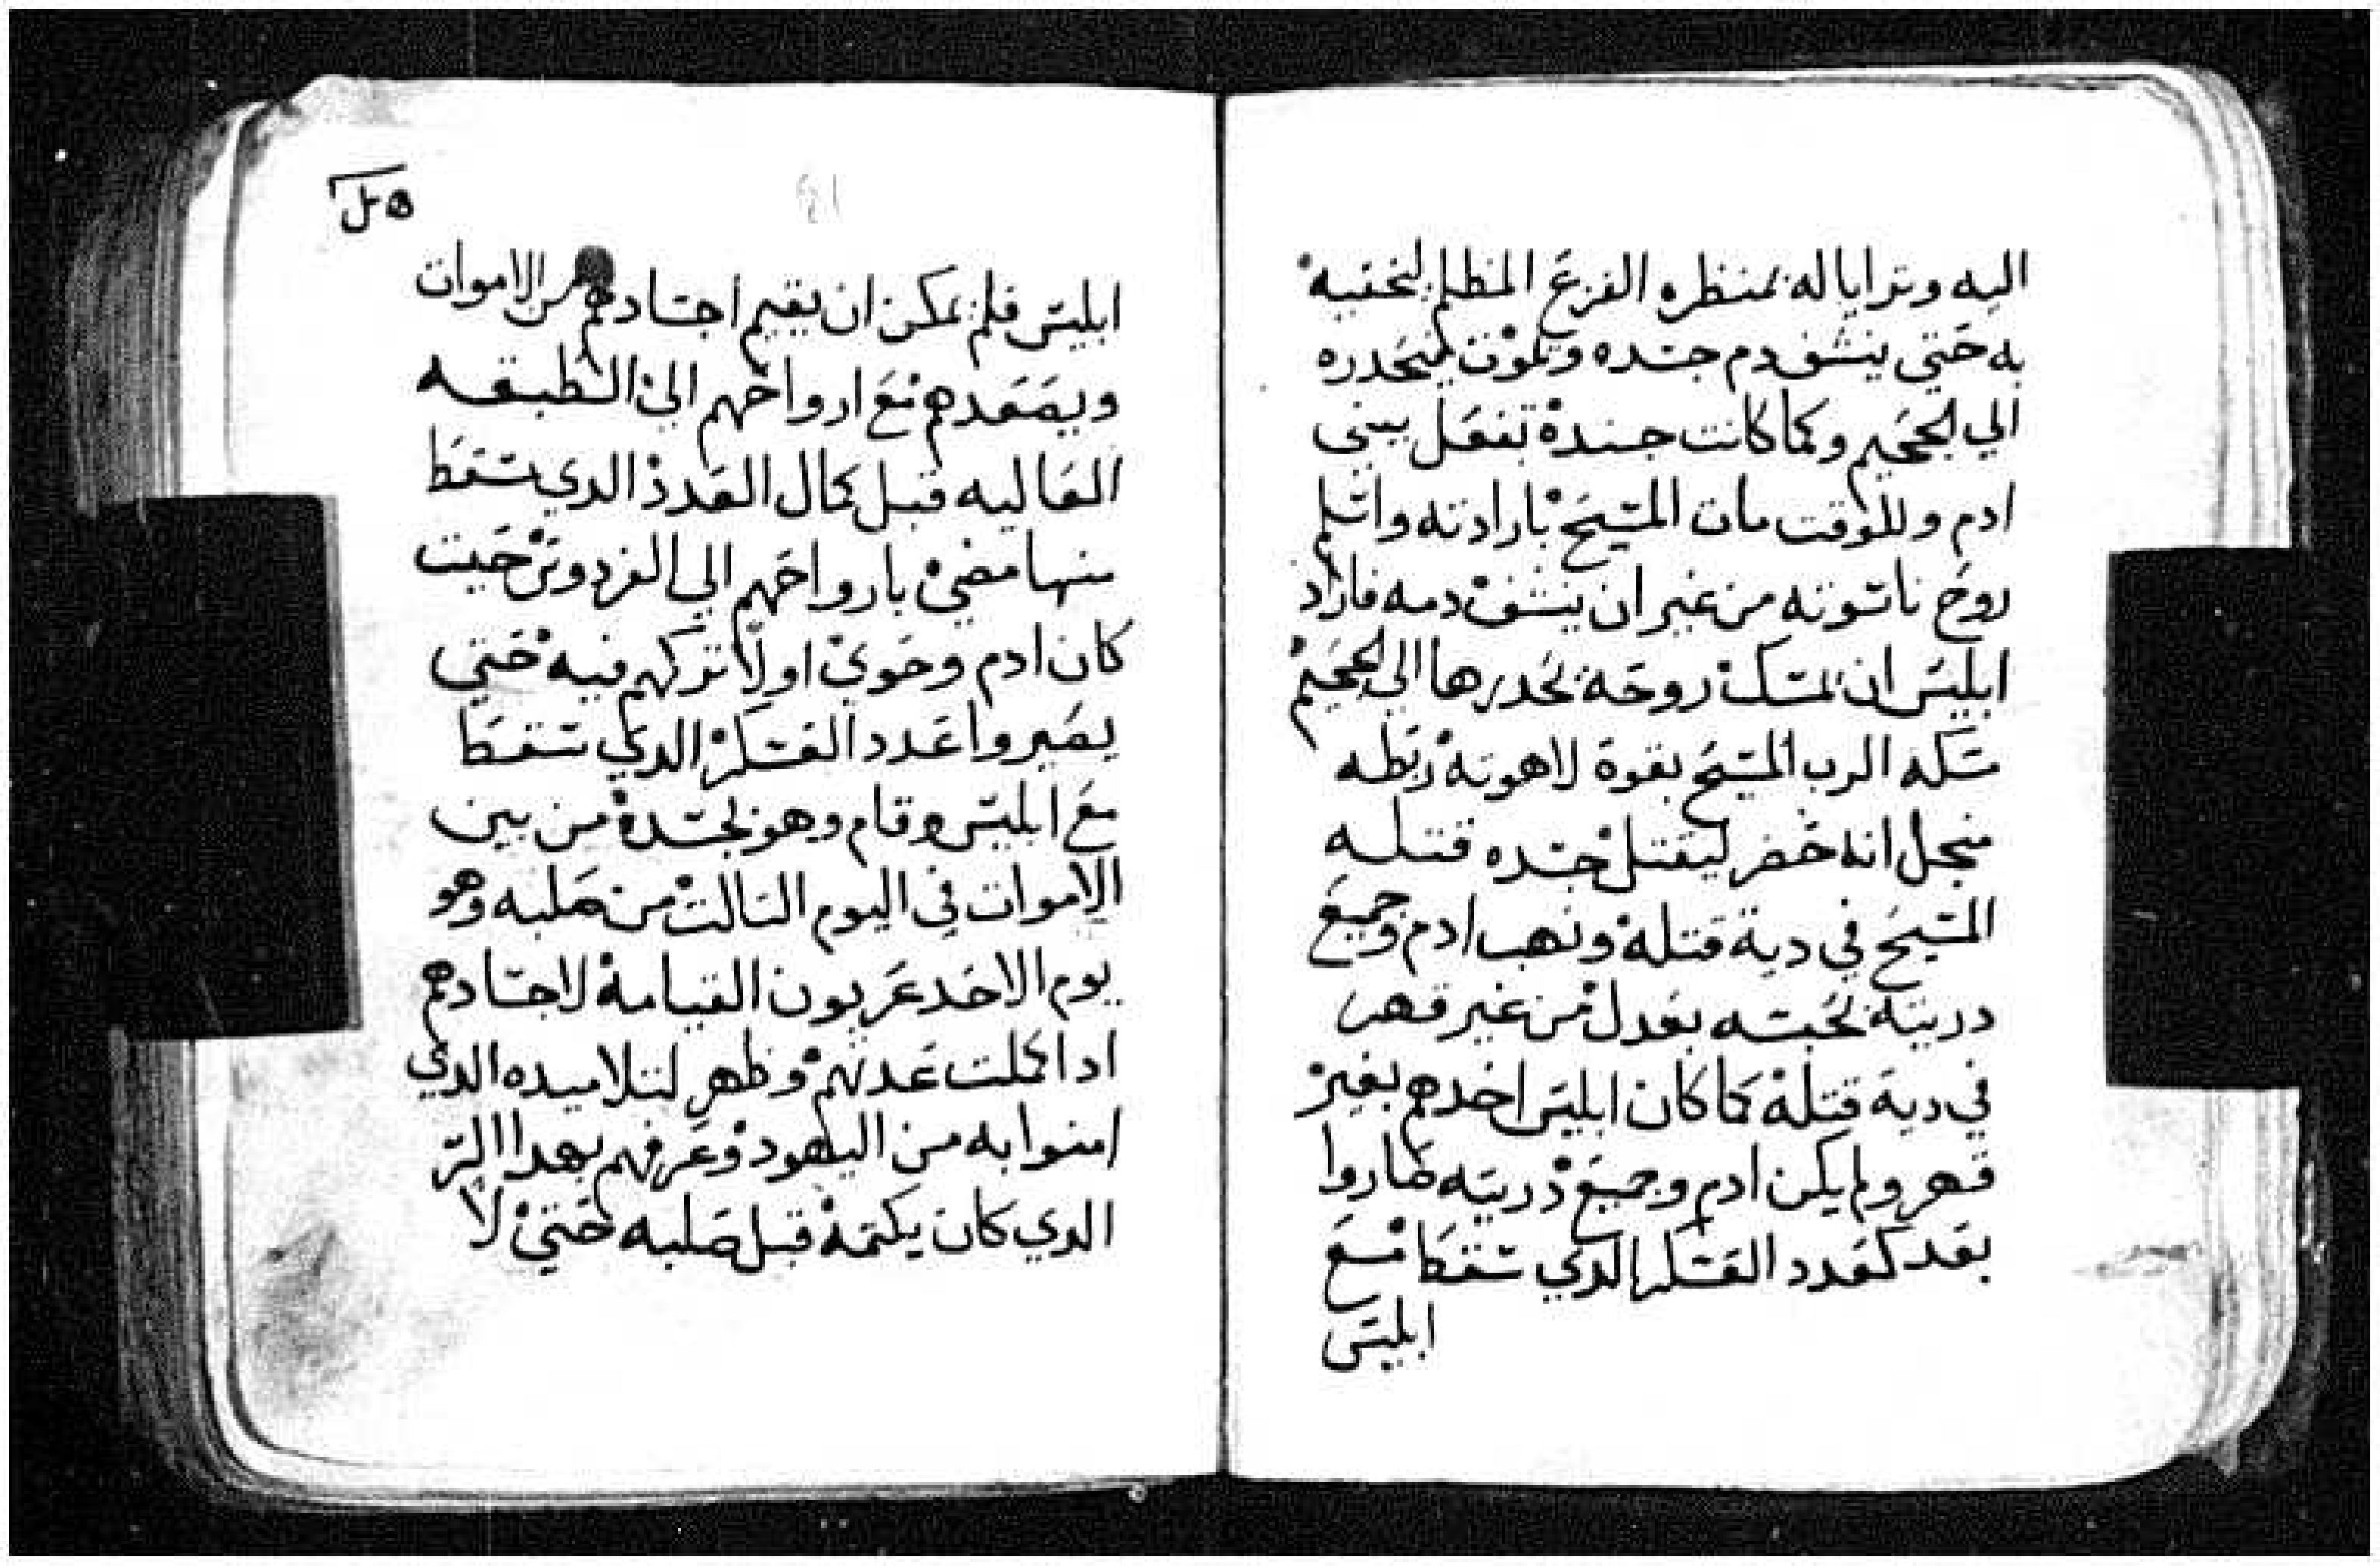 اليه وترايا له بمنظره الفزع المظلم ليخفيه
به حتي ينشف دم جسده ويموت ليحدره
الي الجحيم وكما كانت جنده تفعل ببني
ادم وللوقت مات المسيح بارادته واسلم
روح ناسوته من غير ان ينشف دمه فاراد
ابليس ان يمسك روحه يحدرها الي الجحيم
مسكه الرب المسيح بقوة لاهوته ربطه
منجل انه حضر ليقتل جسده قتله
المسيح في دية قتله ونهب ادم وجميع
دريته بحبسه بعدل من غير قهر
في دية قتله كما كان ابليس اخدهم بغير
قهر ولم يكن ادم وجميع دريته صاروا
بعد كعدد العسكر الدي سقط مع
ابليس
ابليس فلم يمكن ان يقيم اجسادهم من الاموات
ويصعدهم مع ارواحهم الي الطبقه
العاليه قبل كمال العدد الدي سقط
منها مضي بارواحهم الي الفردوس حيت
كان ادم وحوي اولا تركهم فيه حتي
يصيروا عدد العسكر الدي سقط
مع ابليس وقام وهو بجسده من بين
الاموات في اليوم التالت من صلبه وهو
يوم الاحد عربون القيامة لاجسادهم
ادا كملت عدتهم وظهر لتلاميده الدي
امنوا به من اليهود وعرفهم بهدا السر
الدي كان يكتمه قبل صلبه حتي لا